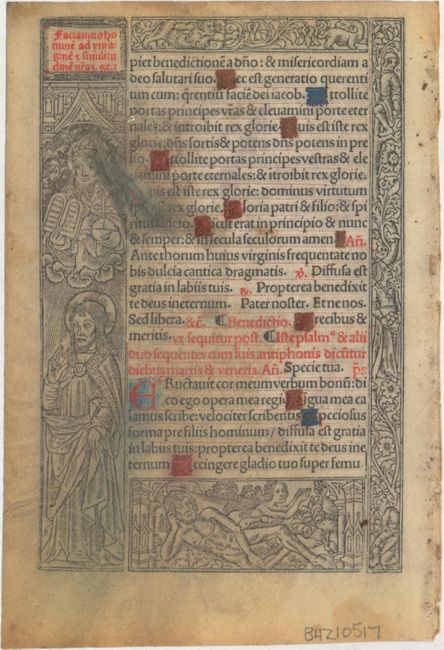 Faciamus ho
minē ad yma
ginē & similitu
dinē nr̄az. ge. i
piet benedictionē a dño: & misericordiam a
deo salutari suo. Hec est generatio querenti
um eum: q̄rentiū faciē dei iacob. Attollite
portas principes vr̄as & eleuamini porte eter
nales: & introibit rex glorie. Quis est iste rex
glorie: dñs fortis & potens dñs potens in pre
lio. Attollite portas principes vestras & ele
uamini porte eternales: & itroibit rex glorie.
Quis est iste rex glorie: dominus virtutum
ipse est rex glorie. Gloria patri & filio: & spi
ritui sancto. Sicut erat in principio & nunc
& semper: & in secula seculorum amen. Añ.
Ante thorum huius virginis frequentate no
bis dulcia cantica dragmatis. ℣. Diffusa est
gratia in labiis tuis. ℟. Propterea benedixit
te deus in eternum. Pater noster. Et ne nos.
Sed libera. &c̄. ¶ Benedictio. Precibus &
meritis. vt sequitur post. ¶ Iste psalmꝰ & alii
duo sequentes cum suis antiphonis dicūtur
diebus martis & veneris. Añ. Specie tua. p̄s
ERuctauit cor meum verbum bonū: di
co ego opera mea regi. Lingua mea ca
lamus scribe: velociter scribentis. Speciosus
forma pre filiis hominum / diffusa est gratia
in labiis tuis: propterea benedixit te deus in e
ternum. Accingere gladio tuo super femu
BAZ10517